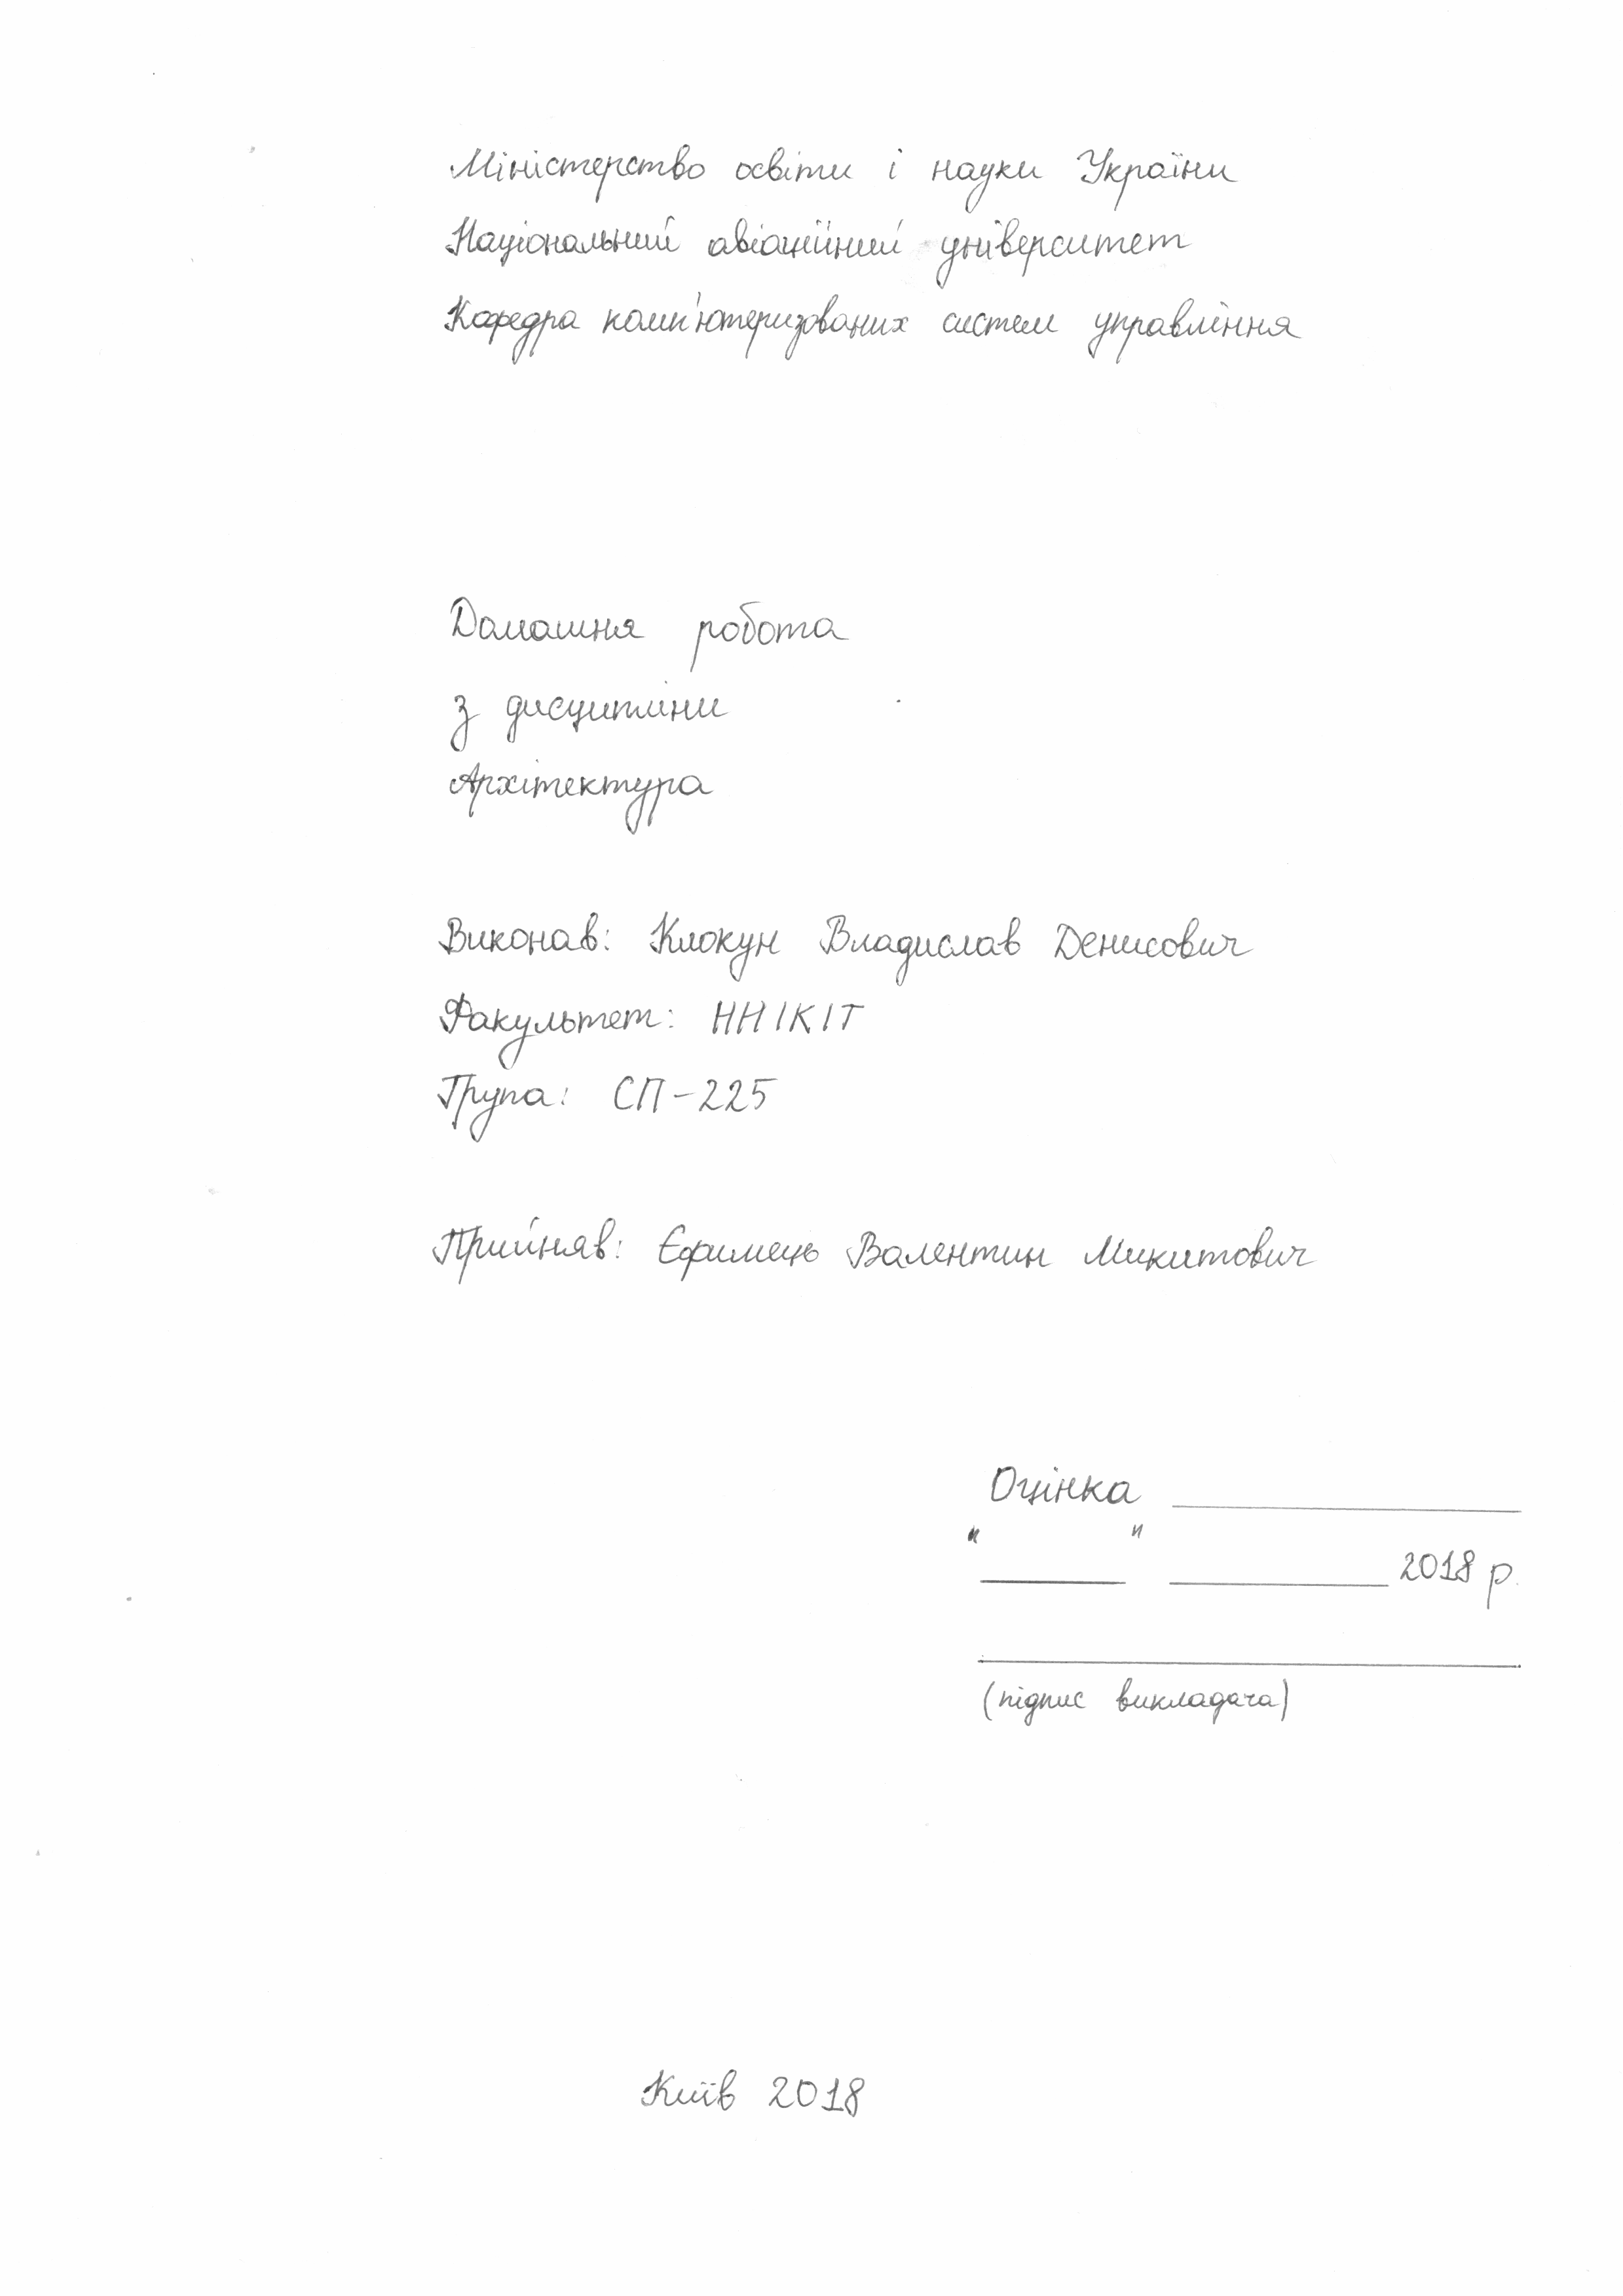 Міністерство освіти і науки України
Національний авіаційний університет
Кафедра комп'ютеризованих систем управління
Домашня робота
з дисципліни
Архітектура
Виконав: Клокун Владислав Денисович
Факультет: ННІКІТ
Група: СП-225
Прийняв: Єфимець Валентин Микитович
Оцінка ________
"____" ________ 2018 р.
________________
(підпис викладача)
Київ 2018